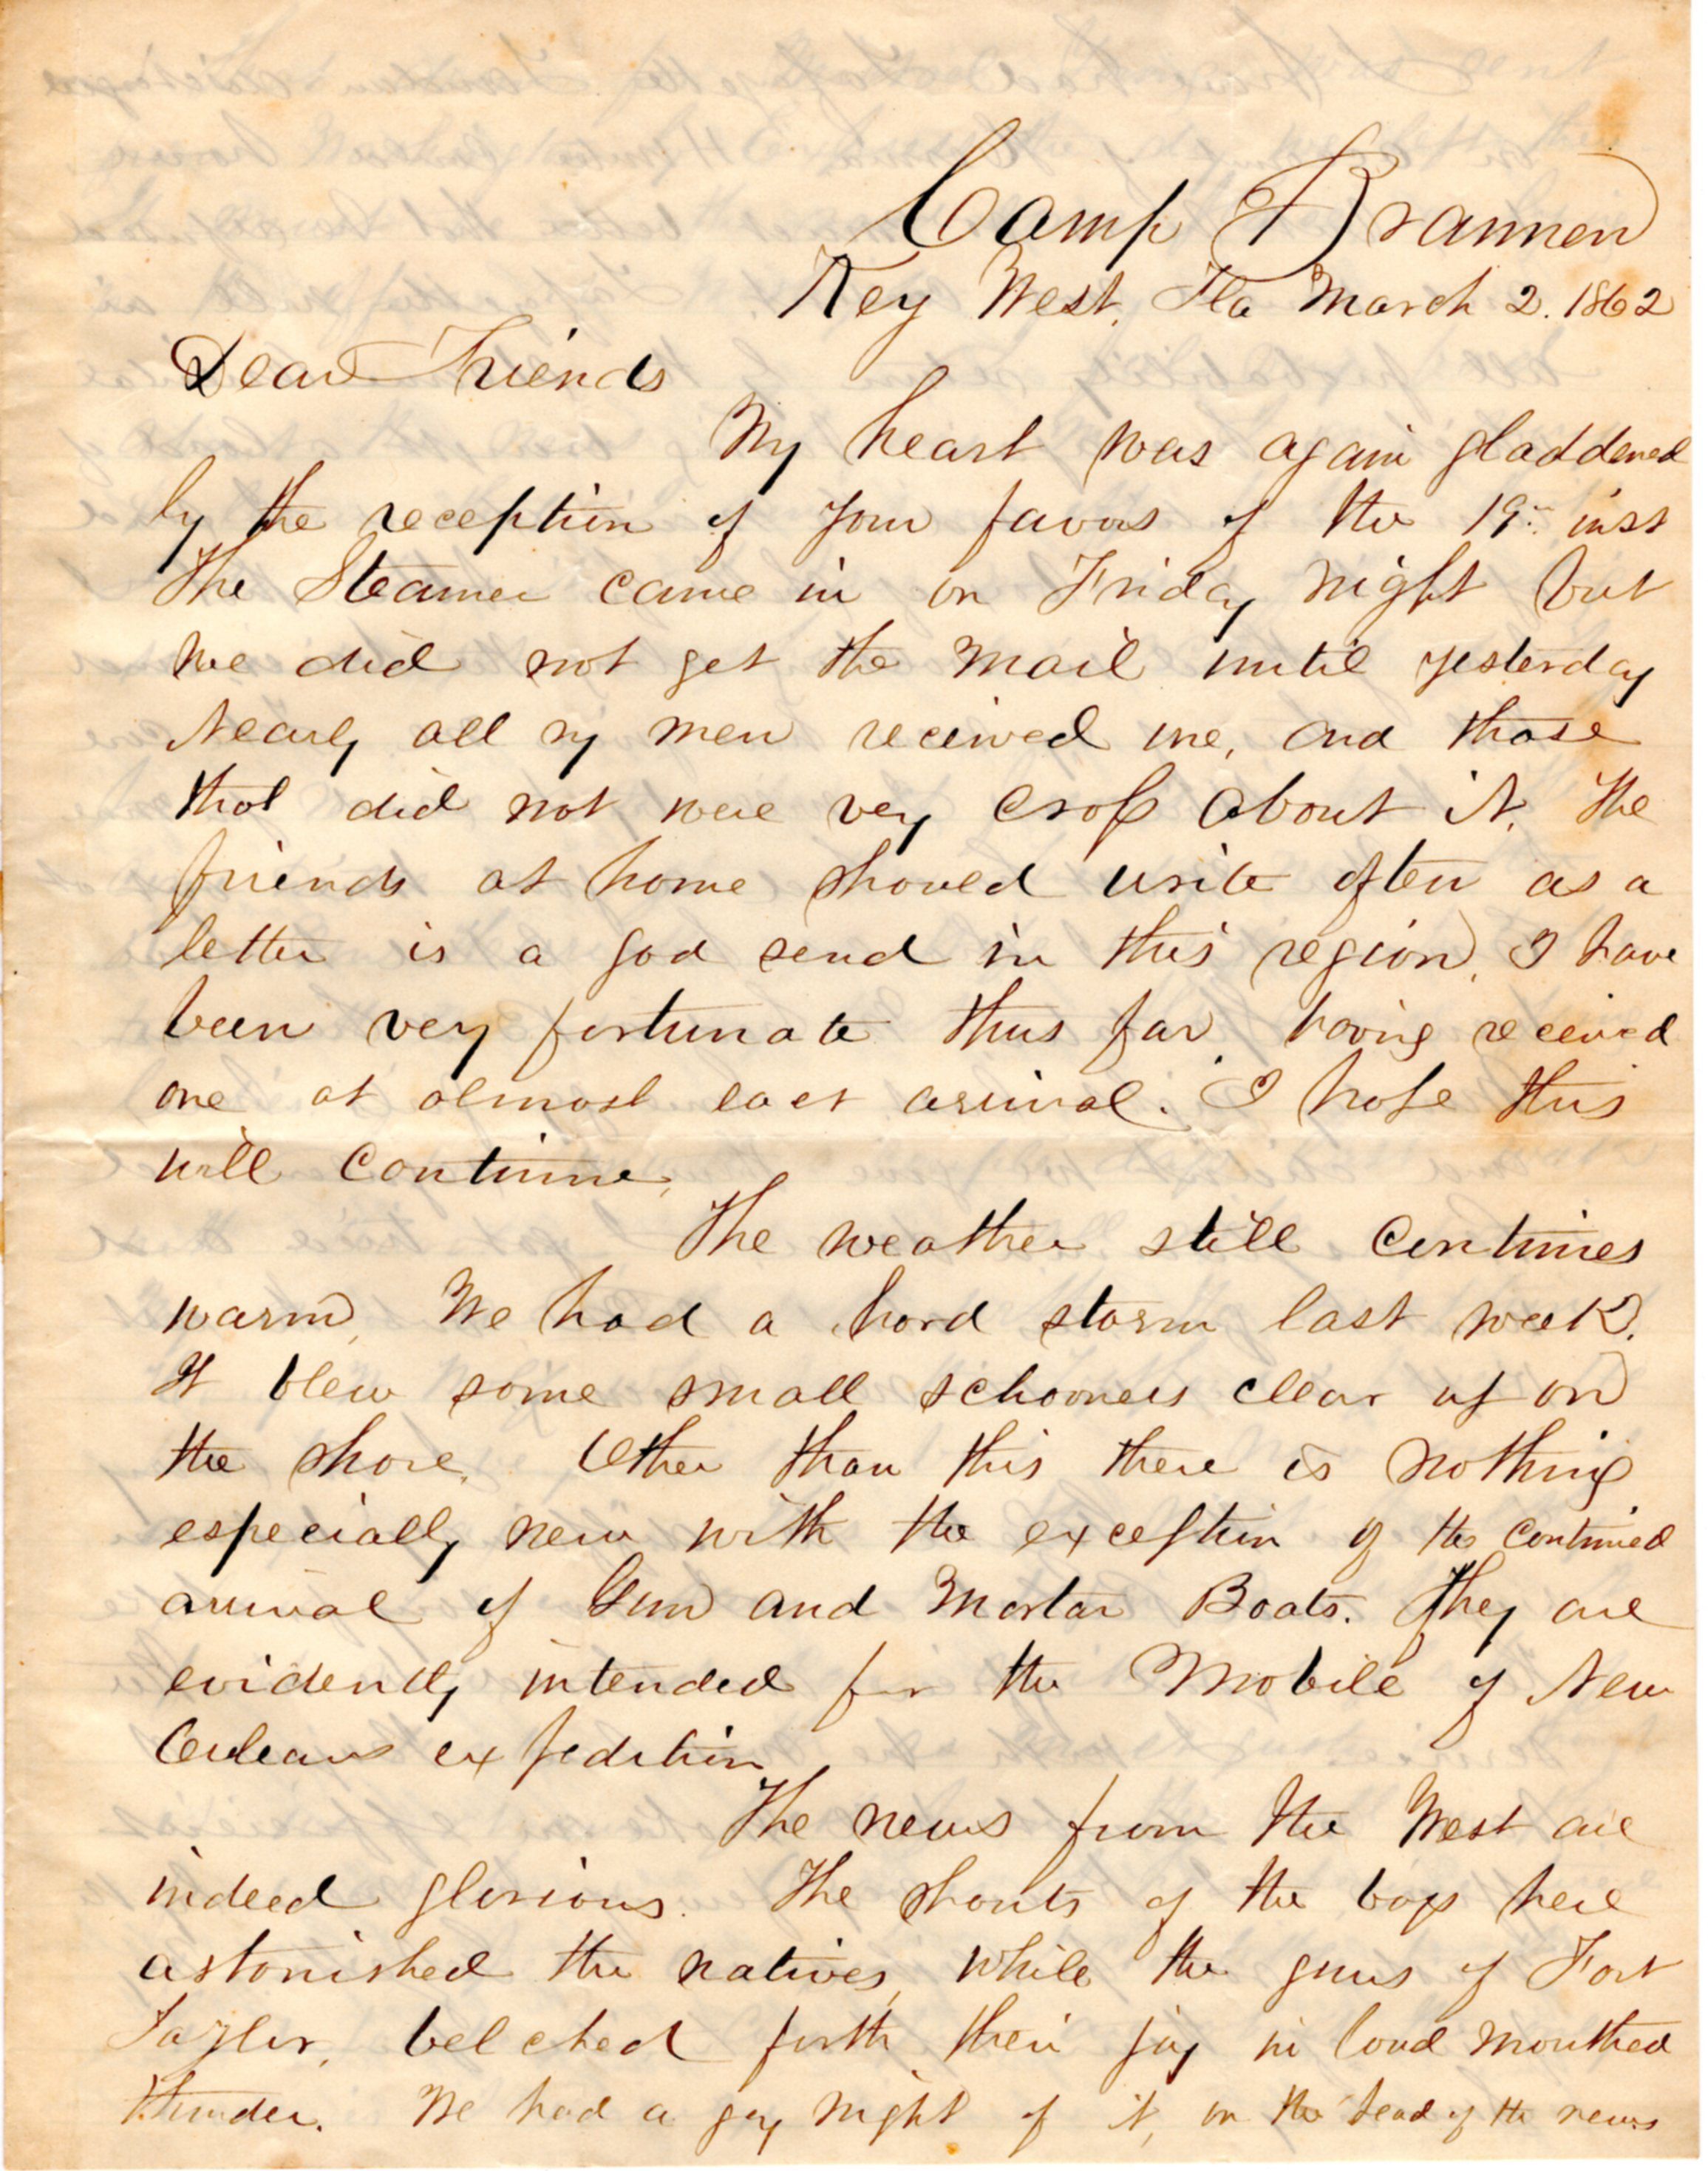 Camp Brannen
Key West, Fla March 2. 1862
Dear Friends
My heart was again gladdened
by the reception of your favors of the 19th inst
The Steamer came in on Friday night but
we did not get the mail until yesterday
Nearly all my men received one, and those
that did not were very cross about it. The
friends at home should write often as a
letter is a god send in this region, I have
been very fortunate thus far, having received
one at almost each arival. I hope this
will continue,
The weather still continues
warm, We had a hard storm last week.
It blew some small schooners clear up on
the shore. Other than this there is nothing
especially new with the exception of the continued
arrival of Gun and Mortar Boats. They are
evidently intended for the Mobile of New
Orleans expedition
The news from the West are
indeed glorious. The shouts of the boys here
astonished the natives, while the guns of Fort
Taylor, belched forth their joy in loud mouthed
thunder. We had a gay night of it, on the head of the news